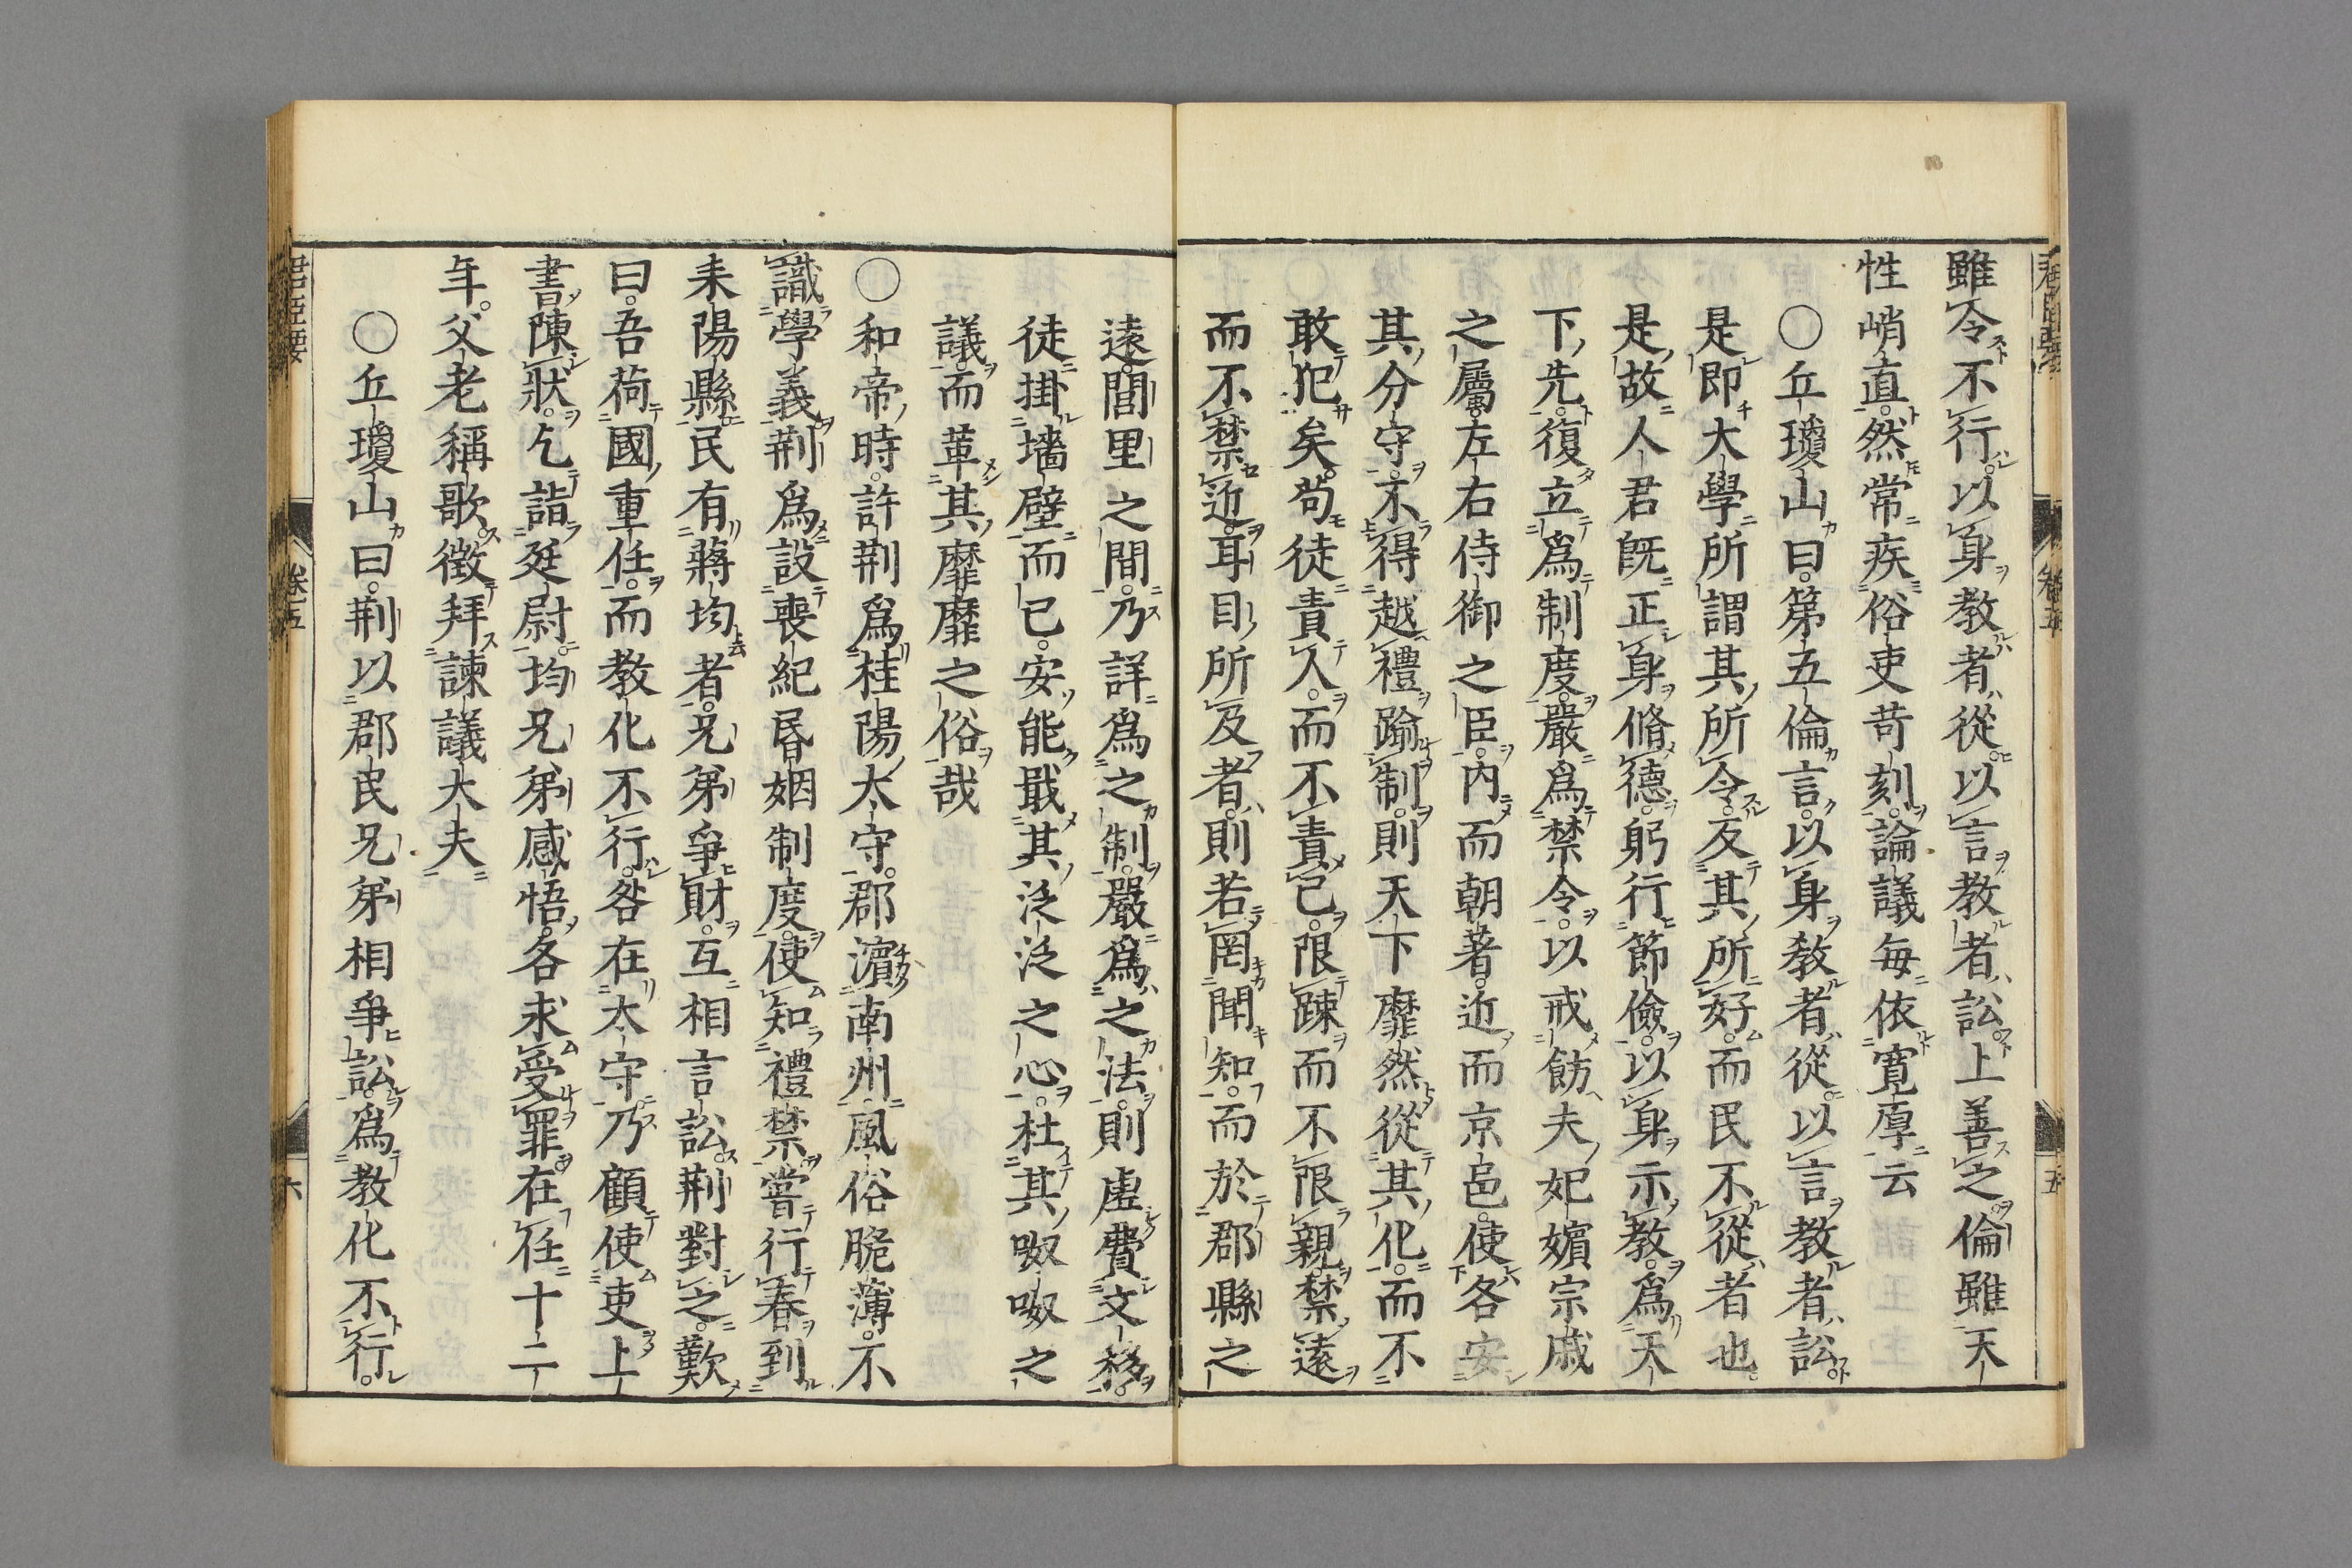 雖令不行以身教者從以言教者訟上善之倫雖天
性峭直然常疾俗吏苛刻論議每依寛厚云
〇丘瓊山曰第五倫言以身教者從以言教者訟
是即大學所謂其所令反其所好而民不從者也
是故人君既正身脩德躬行節儉以身示教爲天
下先復立爲制度嚴爲禁令以戒飭夫妃嬪宗戚
之屬左右侍御之臣內而朝著近而京邑使各安
其分守不得越禮踰制則天下靡然從其化而不
敢犯矣苟徒責人而不責己限踈而不限親禁遠
而不禁近耳目所及者則若罔聞知而於郡縣之
遠閭里之間乃詳爲之制嚴爲之法則虛費文移
徒掛墻壁而已安能戢其泛泛之心杜其呶呶之
議而革其靡靡之俗哉
〇和帝時許荆爲桂陽太守郡濵南州風俗脆薄不
識學義荆爲設喪紀昏姻制度使知禮禁嘗行春到
耒陽縣民有蔣均者兄弟爭財互相言訟荆對之歎
曰吾荷國重任而教化不行咎在太守乃顧使吏上
書陳狀乞詣廷尉均兄弟感悟各求受罪在任十二
年父老稱歌徵拜諫議大夫
〇丘瓊山曰荆以郡民兄弟相爭訟爲教化不行
卷五
五
君臣要
卷五
六